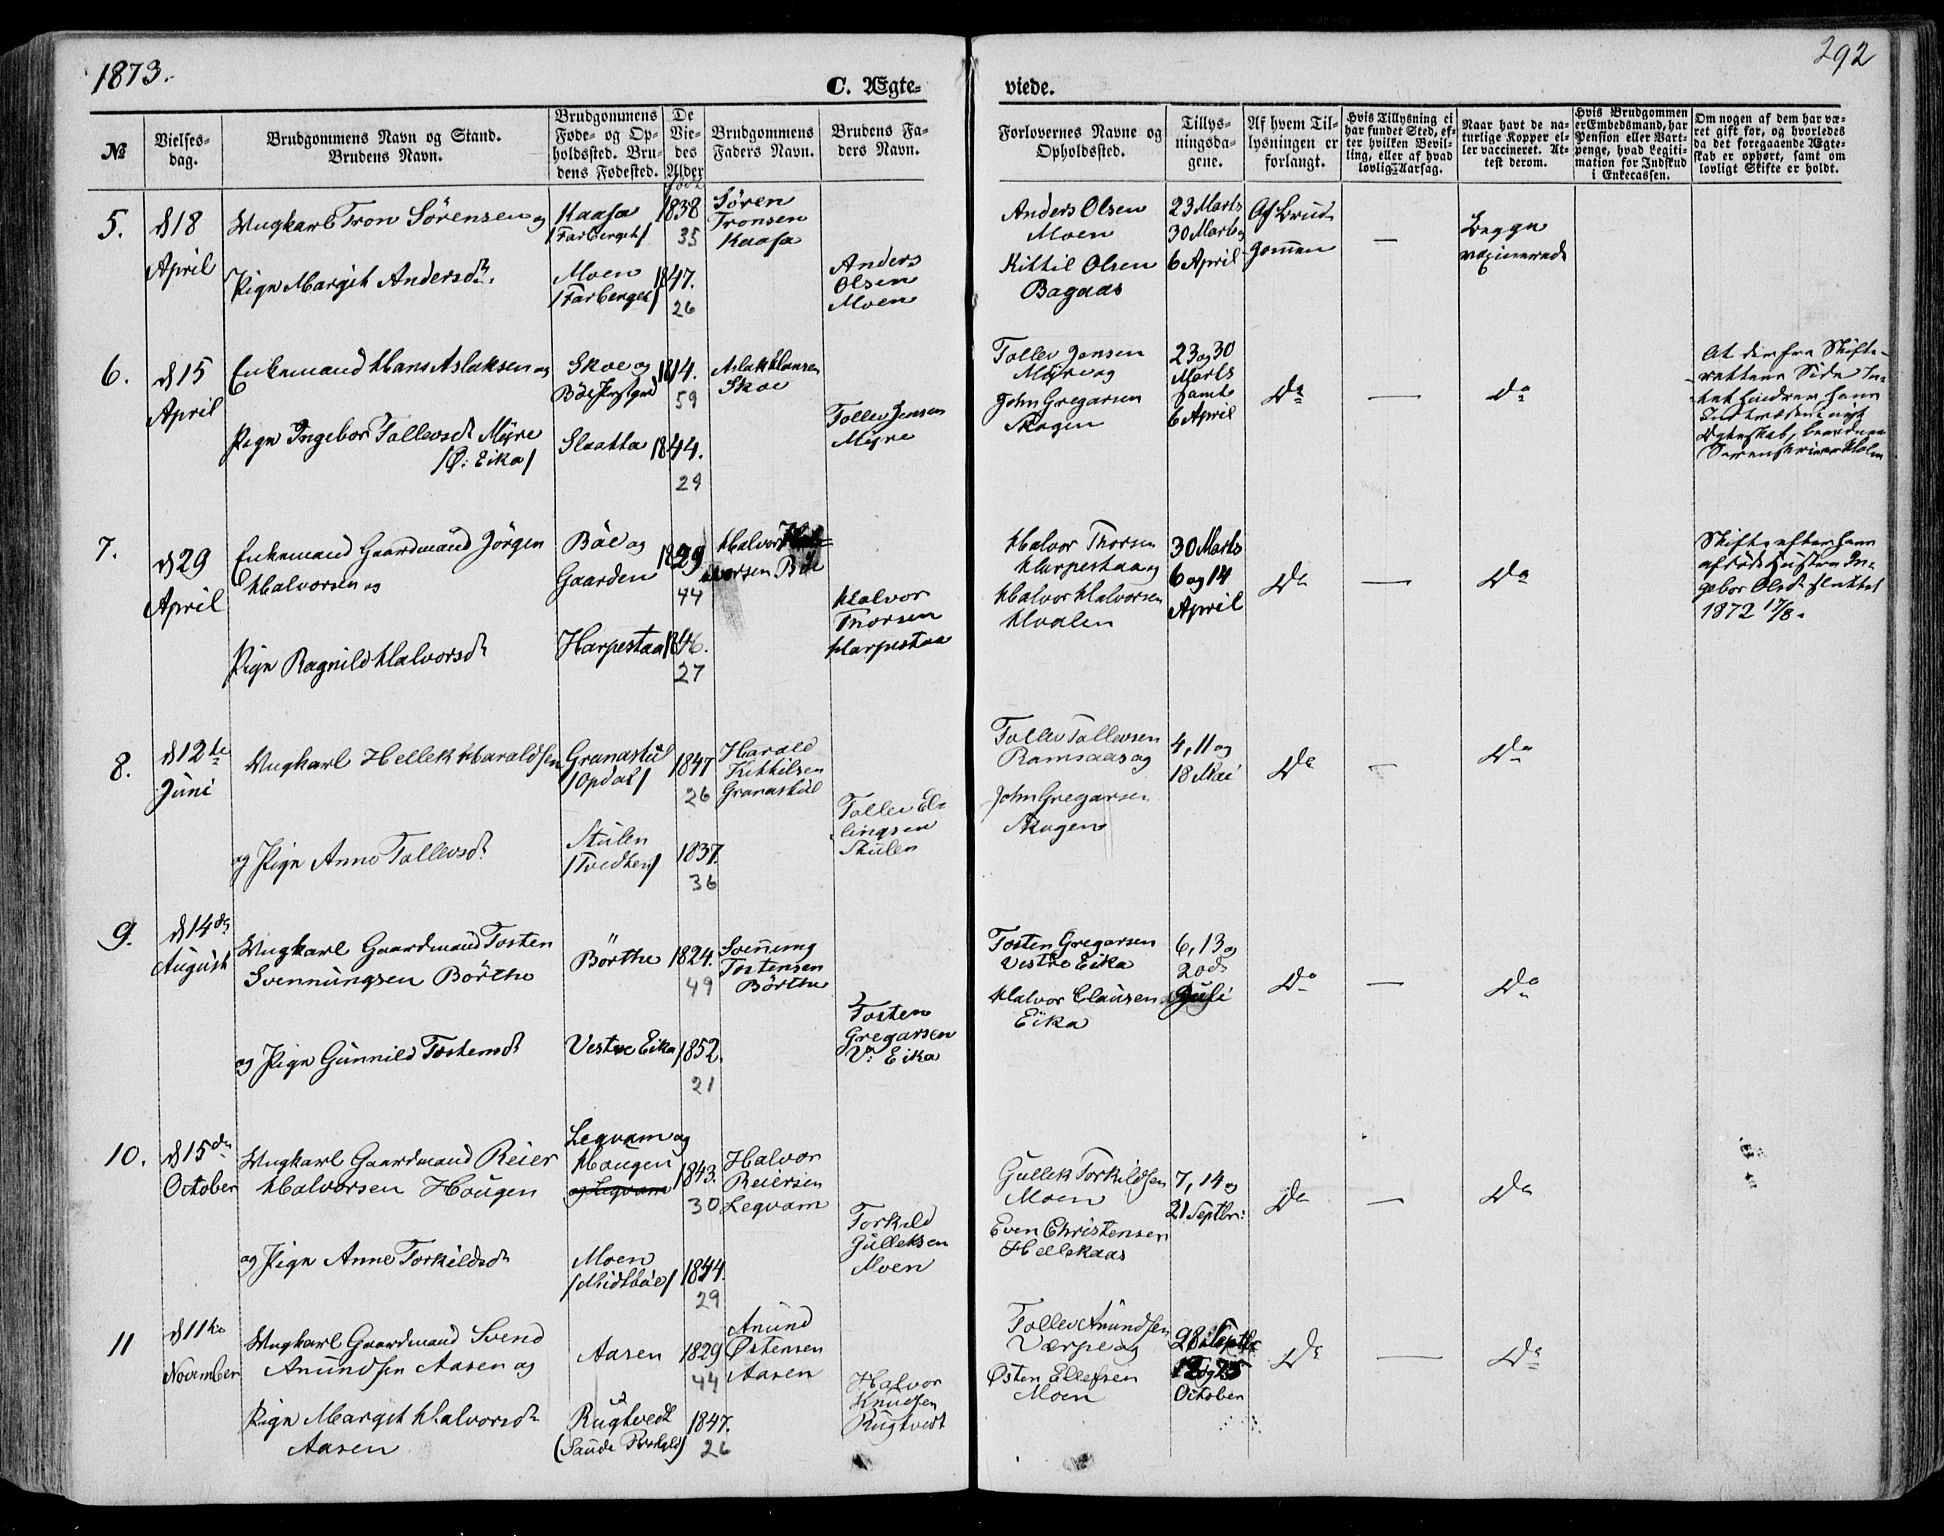 1873.
292
C. Ægte-
viede.
№
Vielses-
dag.
Brudgommens Navn og Stand.
Brudens Navn.
Brudgommens
Føde- og Op-
holdssted. Bru-
dens Fødested.
De
Vie-
des
Alder
Brudgommens
Faders Navn.
Brudens Fa-
ders Navn.
Forlovernes Navne og
Opholdssted.
Tillys-
ningsda-
gene.
Af hvem Til-
lysningen er
forlangt.
Hvis Tillysning ei
har fundet Sted, ef-
ter hvilken Bevil-
ling, eller af hvad
lovlig Aarsag.
Naar havt de na-
turlige Kopper el-
ler vaccineret. At-
test derom.
Hvis Brudgommen
er Embedsmand, har
Pension eller Vart-
penge, hvad Legiti-
mation for Indskud
i Enkecassen.
Om nogen af dem har væ-
ret gift før, og hvorledes
da det foregaaende Ægte-
skab er ophørt, samt om
lovligt Skifte er holdt.
5.
d 18
April
Ungkarl Tron Sørensen og
Pige Margit Andersdr.
Kaasa
/Farberget/
Moen
/Farberget/
1838
35
1847.
26
Søren
Tronsen
Kaasa
Anders
Olsen
Moen
Anders Olsen
Moen
Kittil Olsen
Bagaas
23 Marts
30 Marts
6 April
Af Brud-
gommen
—
Begge
vaxinerede
6.
d 15
April
Enkemand Hans Aslaksen og
Pige Ingebor Tollevsdr Myre
/O: Eika/
Skoe og
Böe
Slaatta
1814.
59
1844.
29
Aslak Hansen
Skoe
Tollev Jensen
Myre
Tollev Jensen
Myre og
John Gregarsen
Skogen
23 og 30
Marts
samt
6 April
Do
—
Do
At der fra Skifte-
rettens Side In-
tet hindrer ham
7.
d 29
April
Enkemand Gaardmand Jörgen
Halvorsen og
Pige Ragnild Halvorsdr
Böe og
Gaarden
Harpestaa
1829
44
1846.
27
Halvor Hal-
vorsen Böe
Halvor
Thorsen
Harpestaa
Halvor Thorsen
Harpestaa og
Halvor Halvorsen
Hvalen
30 Marts
6 og 14
April
Do
—
Do
Skifte efter hans
afdöde Hustru In-
gebor Olsdr sluttet
1872 17/8.
8.
d 12te
Juni
Ungkarl Hellek Haraldsen
og Pige Anne Tollevsdr
Granastül
/Opdal/
Stulen
/Tvedten/
1847
26
1837.
36
Harald
Kittilsen
Granastül
Tollev El-
lingsen
Stulen
Tollev Tollevsen
Ramsaas og
John Gregarsen
Skogen
4, 11 og
18 Mai
Do
—
Do
9.
d 14de
August
Ungkarl Gaardmand Tosten
Svennungsen Börthe
og Pige Gunnild Tostensdr
Börthe
Vestre Eika
1824.
49
1852.
21
Svennung
Tostensen
Börthe
Tosten
Gregarsen
V: Eika
Tosten Gregarsen
Vestre Eika
Halvor Clausen
Eika
6, 13 og
20de
Juli
Do
—
Do
10.
d 15de
October
Ungkarl Gaardmand Reier
Halvorsen Hougen
og Pige Anne Torkildsdr
Legvam og
Hougen
og Legvam
Moen
/Midtböe/
1843.
30
1844.
29
Halvor
Reiersen
Legvam
Torkild
Gulleksen
Moen
Gullek Torkildsen
Moen
Even Christensen
Hellekaas
7, 14 og
21 Septbr:
Do
—
Do
11
d 11te
November
Ungkarl Gaardmand Svend
Anundsen Aasen og
Pige Margit Halvorsdr
Aasen
Aasen
Rugtvedt
1829
44
1847.
26
Anund
Østensen
Aasen
Halvor
Knudsen
Rugtvedt
Tollev Anundsen
Værpe og
Østen Ellefsen
Moen
28 Septbr
October
Do
—
Do